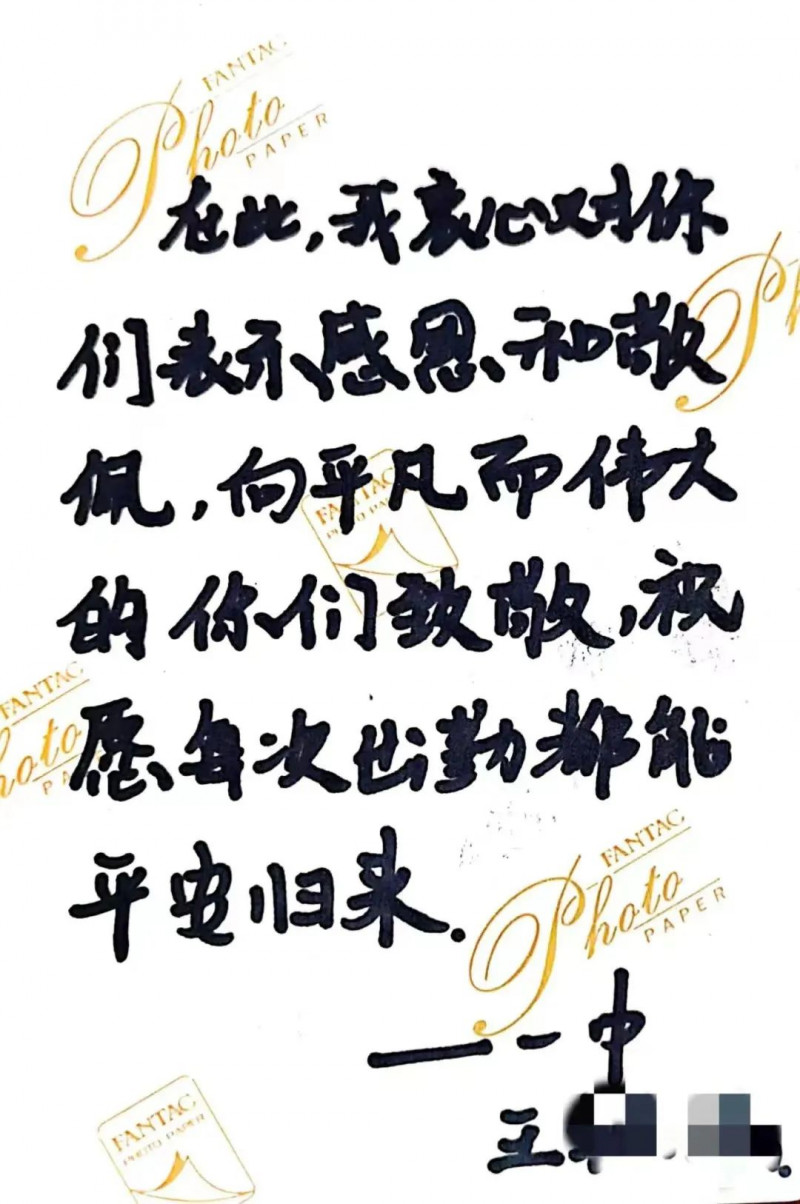 FANTAC
Photo
PAPER
在此,我衷心对你
们表示感恩和敬
佩,向平凡而伟大
FANTAC
PHOTO PAPER
的你们致敬,祝
FANTAC
Photo
愿每次出勤都能
平安归来.
FANTAC
Photo
PAPER
——一中
王
FANTAC
PHOTO PAPER